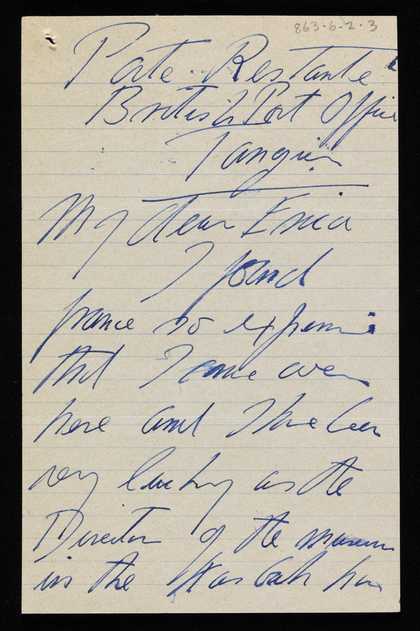 863-6-2-3
Poste Restante
British Post Office
Tangier
My dear Erica
I found
france so expensive
that I came over
here and I have been
very lucky as the
Director of the museum
in the Kasbah has